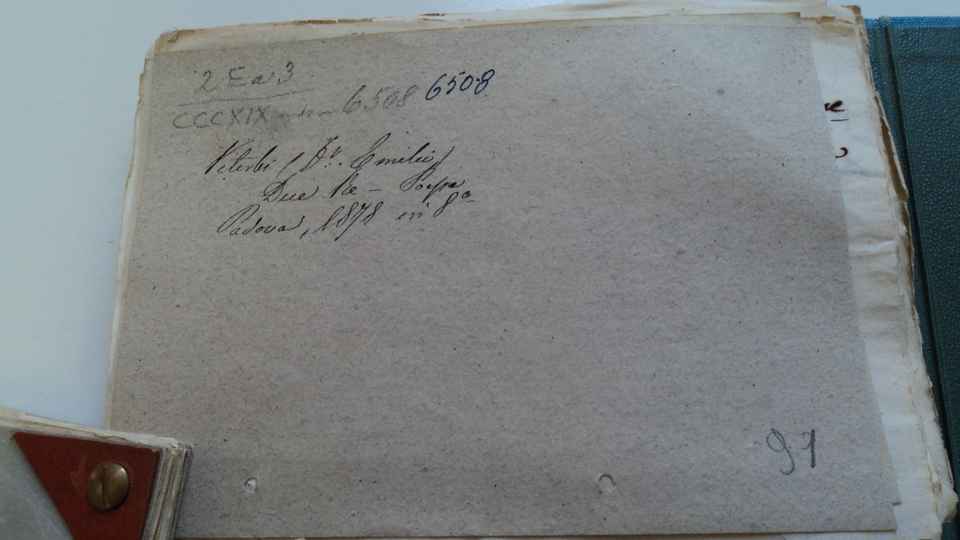 2 Ea 3
CCCXIX 6508 6508
Viterbi (Dr. Emilio)
Due Re – Poesia
Padova, 1878 in 8º
91